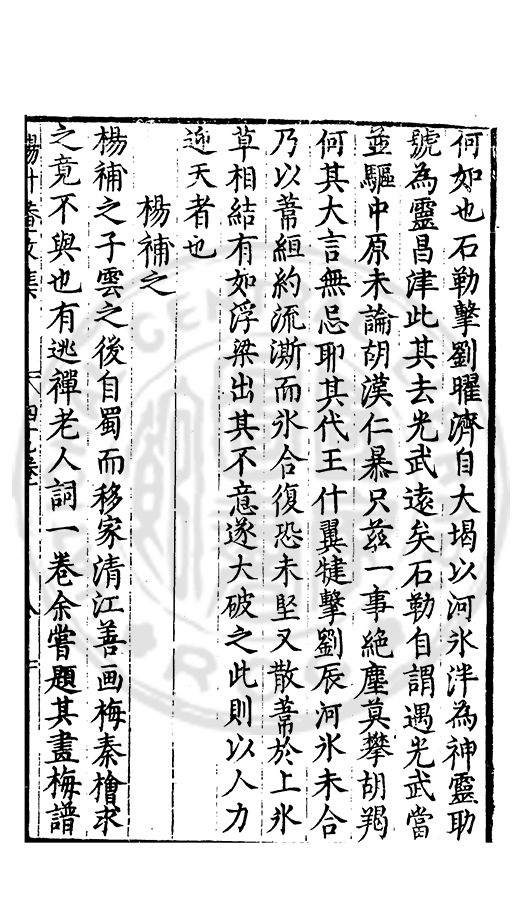 何如也石勒擊劉曜濟自大堨以河氷泮為神靈助
號為靈昌津此其去光武遠矣石勒自謂遇光武當
並驅中原未論胡漢仁暴只茲一事絶塵莫攀胡羯
何其大言無忌耶其代王什翼犍擊劉辰河氷未合
乃以葦絙約流澌而氷合復恐未堅又散葦於上氷
草相結有如浮梁出其不意遂大破之此則以人力
迎天者也
楊補之
楊補之子雲之後自蜀而移家清江善画梅秦檜求
之竟不與也有逃禪老人詞一卷余嘗題其畫梅譜